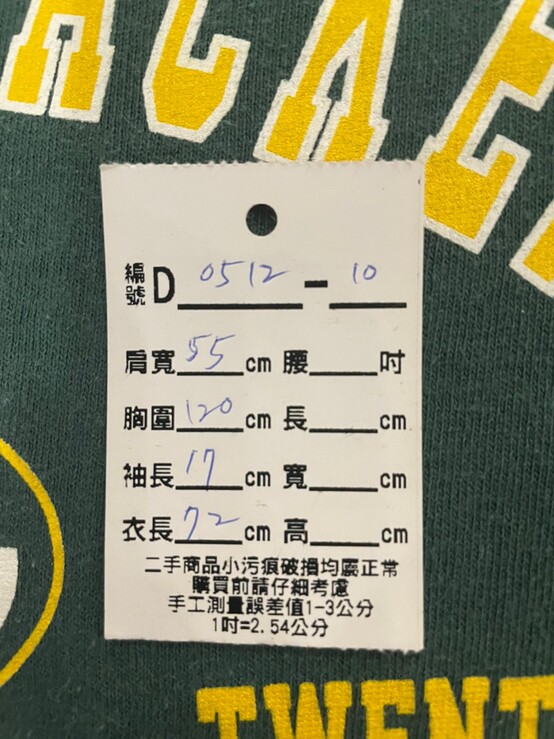 ACKE
編號D 0512 - 10
肩寬 55 cm 腰 吋
胸圍 120 cm 長 cm
袖長 17 cm 寬 cm
衣長 72 cm 高 cm
二手商品小污痕破損均屬正常
購買前請仔細考慮
手工測量誤差值1-3公分
1吋=2.54公分
TWENT